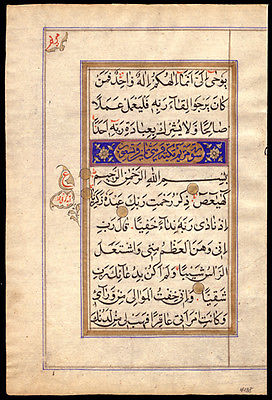 يُوحَىٰ إِلَيَّ أَنَّمَا إِلَٰهُكُمْ إِلَٰهٌ وَاحِدٌ فَمَنْ
كَانَ يَرْجُوا لِقَاءَ رَبِّهِ فَلْيَعْمَلْ عَمَلًا
صَالِحًا وَلَا يُشْرِكْ بِعِبَادَةِ رَبِّهِ أَحَدًا
سورة مريم
بِسْمِ اللهِ الرَّحْمٰنِ الرَّحِيمِ
كهيعص ذِكْرُ رَحْمَتِ رَبِّكَ عَبْدَهُ زَكَرِيَّا
إِذْ نَادَىٰ رَبَّهُ نِدَاءً خَفِيًّا قَالَ رَبِّ
إِنِّي وَهَنَ الْعَظْمُ مِنِّي وَاشْتَعَلَ
الرَّأْسُ شَيْبًا وَلَمْ أَكُنْ بِدُعَائِكَ رَبِّ
شَقِيًّا وَإِنِّي خِفْتُ الْمَوَالِيَ مِنْ وَرَائِي
وَكَانَتِ امْرَأَتِي عَاقِرًا فَهَبْ لِي مِنْ لَدُنْكَ